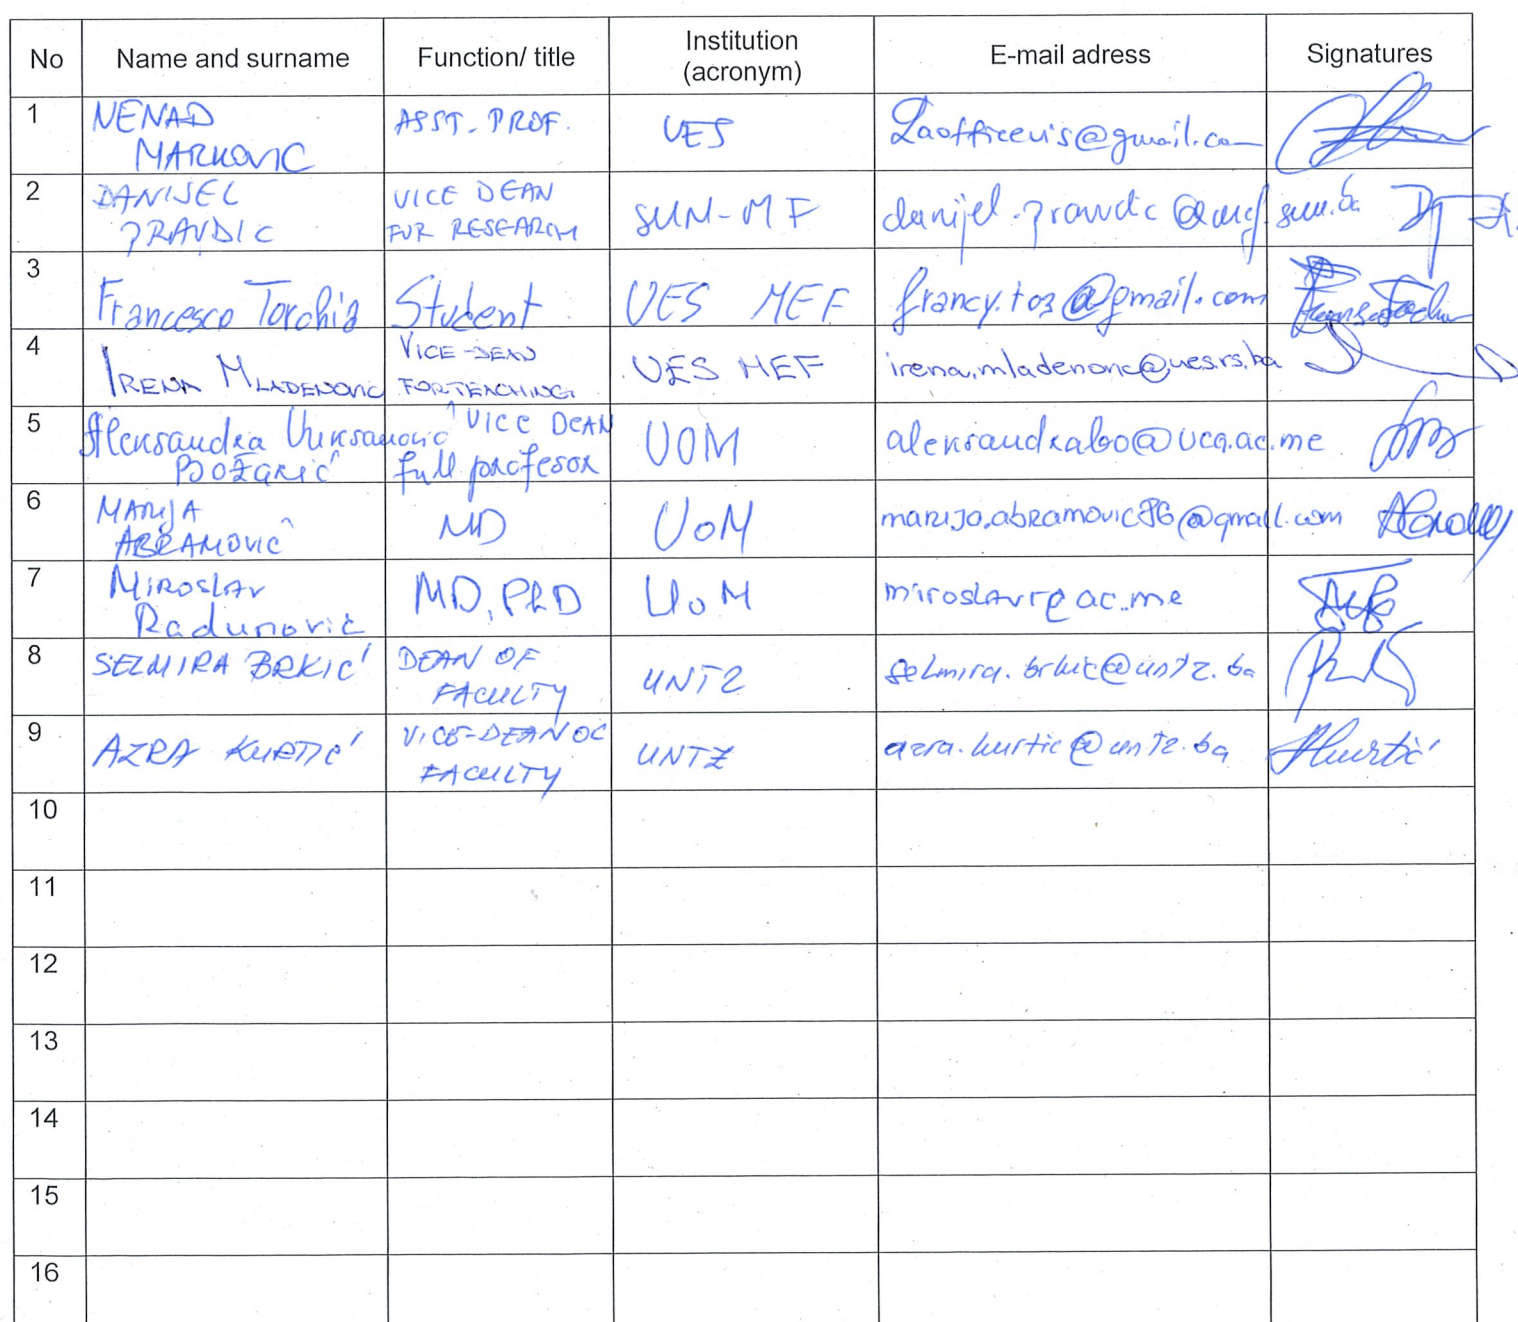 No Name and surname Function/ title Institution (acronym) E-mail adress Signatures
1 NENAD MARKOVIC ASST. PROF. UES @gmail.com
2 DANIJEL PRAVDIC VICE DEAN FOR RESEARCH SUM-MF danijel.pravdic@mef.sum.ba
3 Francesco Torchia Student UES MEF francy.to3@gmail.com
4 IRENA MLADENOVIC VICE-DEAN FOR TEACHING UES MEF irena.mladenovic@ues.rs.ba
5 Aleksandra Vuksanović BOŽARIĆ VICE DEAN full profesor UOM aleksandrabo@ucg.ac.me
6 MARIJA ABRAMOVIĆ MD UoM marija.abramovic86@gmail.com
7 Miroslav Radunović MD, PhD UoM miroslavr@ac.me
8 SELMIRA BRKIĆ DEAN OF FACULTY UNTZ selmira.brkic@untz.ba
9 AZRA KURTIĆ VICE-DEAN OF FACULTY UNTZ azra.kurtic@untz.ba Akurtić
10
11
12
13
14
15
16